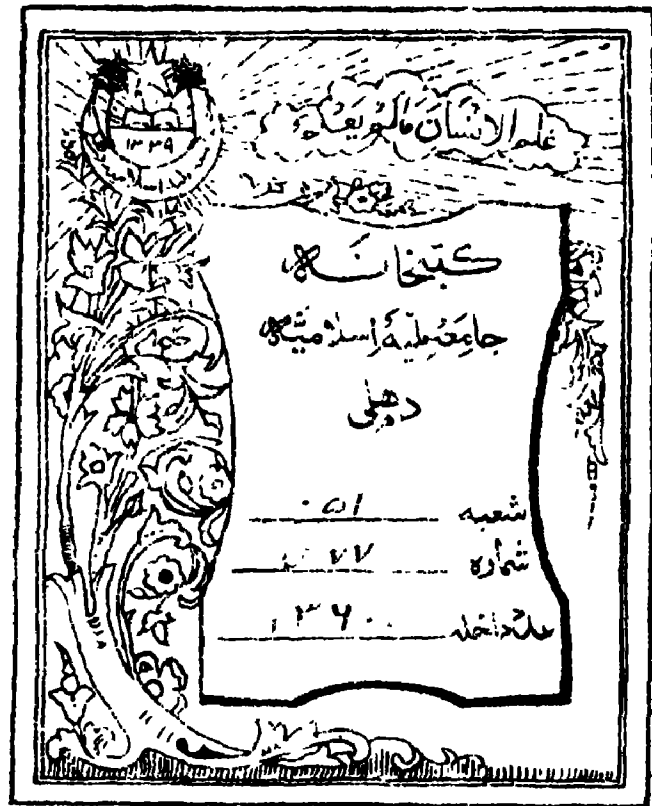 علم الانسان مالم يعلم
۱۳۳۹
کتبخانہ
جامعہ ملیہ اسلامیہ
دھلی
شعبہ
شمارہ ۷۷
عدد داخلہ ۱۳۶۰